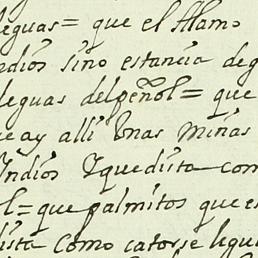 leguas= que el Alamo
ndios sino estancia de g
leguas del peñol= que
e ay alli Unas minas
Yndios Y que dista com
l= que palmitos que es
ista como catorse legu